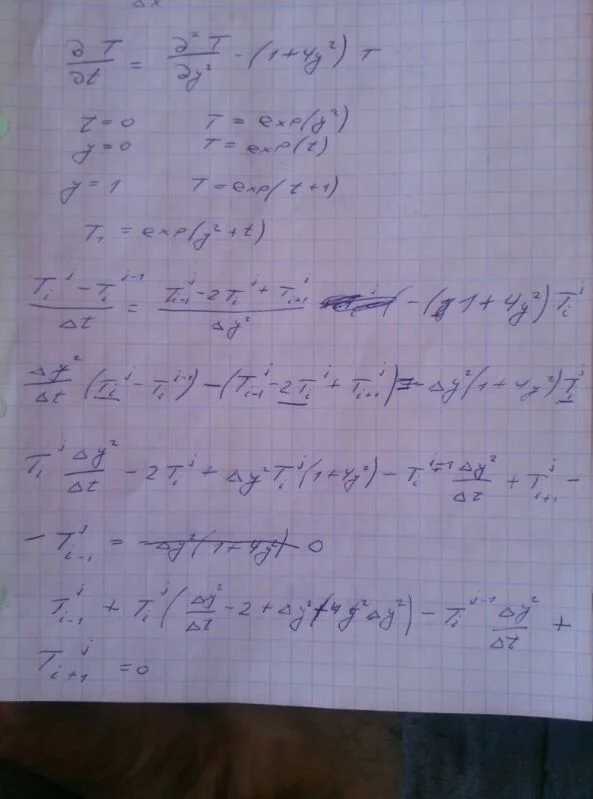 Δx
∂T/∂t = ∂²T/∂y² - (1+4y²) T
t=0 T = exp(y²)
y=0 T = exp(t)
y=1 T=exp(t+1)
T₁ = exp(y²+t)
(Tᵢʲ - Tᵢʲ⁻¹)/Δt = (Tᵢ₋₁ʲ - 2Tᵢʲ + Tᵢ₊₁ʲ)/Δy² - (1+4y²) Tᵢʲ
Δy²/Δt (Tᵢʲ - Tᵢʲ⁻¹) - (Tᵢ₋₁ʲ - 2Tᵢʲ + Tᵢ₊₁ʲ) = - Δy²(1+4y²) Tᵢʲ
Tᵢʲ Δy²/Δt - 2Tᵢʲ + Δy² Tᵢʲ (1+4y²) - Tᵢʲ⁻¹ Δy²/Δt + Tᵢ₊₁ʲ -
- Tᵢ₋₁ʲ = Δy²(1+4y²) 0
Tᵢ₋₁ʲ + Tᵢʲ (Δy²/Δt - 2 + Δy² + 4y²Δy²) - Tᵢʲ⁻¹ Δy²/Δt +
Tᵢ₊₁ʲ = 0